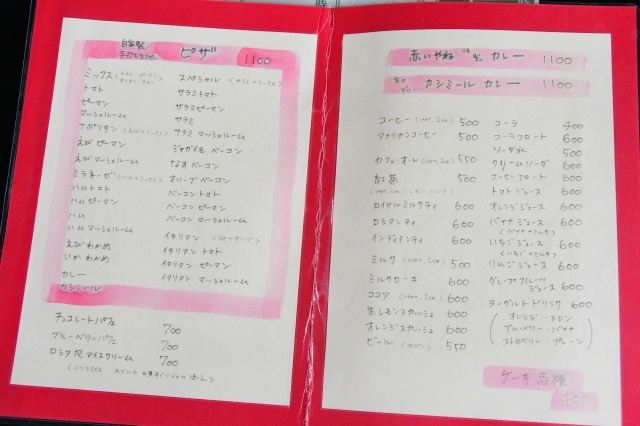 自家製
手打ち生地 ピザ 1100
ミックス
トマト
ピーマン
マッシュルーム
ナポリタン
えび ピーマン
えび マッシュルーム
ミラネーゼ
ハム トマト
ハム ピーマン
ハム
ハム マッシュルーム
えび わかめ
いか わかめ
カレー
カシミール
スペシャル
サラミ トマト
サラミ ピーマン
サラミ
サラミ マッシュルーム
ジャガイモ ベーコン
なす ベーコン
オリーブ ベーコン
ベーコン トマト
ベーコン ピーマン
ベーコン マッシュルーム
イタリアン
イタリアン トマト
イタリアン ピーマン
イタリアン マッシュルーム
チョコレートパフェ 700
ブルーベリーパフェ 700
ロシア風アイスクリーム 700
赤いやね 特製 カレー 1100
カシミール カレー 1100
コーヒー (HOT, Ice) 500
アメリカンコーヒー 500
カフェ・オ・レ (HOT, Ice) 550
紅茶 500
ロイヤルミルクティ 600
ロシアンティ 600
インディアンティ 600
ミルク (HOT, Ice) 500
ミルクセーキ 600
ココア (HOT, Ice) 600
生レモンスカッシュ 600
オレンジスカッシュ 600
ビール 550
コーラ 400
コーラフロート 600
ソーダ水 500
クリームソーダ 600
コーヒーフロート 600
トマトジュース 600
オレンジジュース 600
バナナジュース 600
(バナナミルク)
いちごジュース 600
(いちごミルク)
りんごジュース 600
グレープフルーツ
ジュース 600
ヨーグルトドリンク 600
オレンジ・メロン
ブルーベリー・バナナ
ストロベリー・プレーン
ケーキ 各種
400